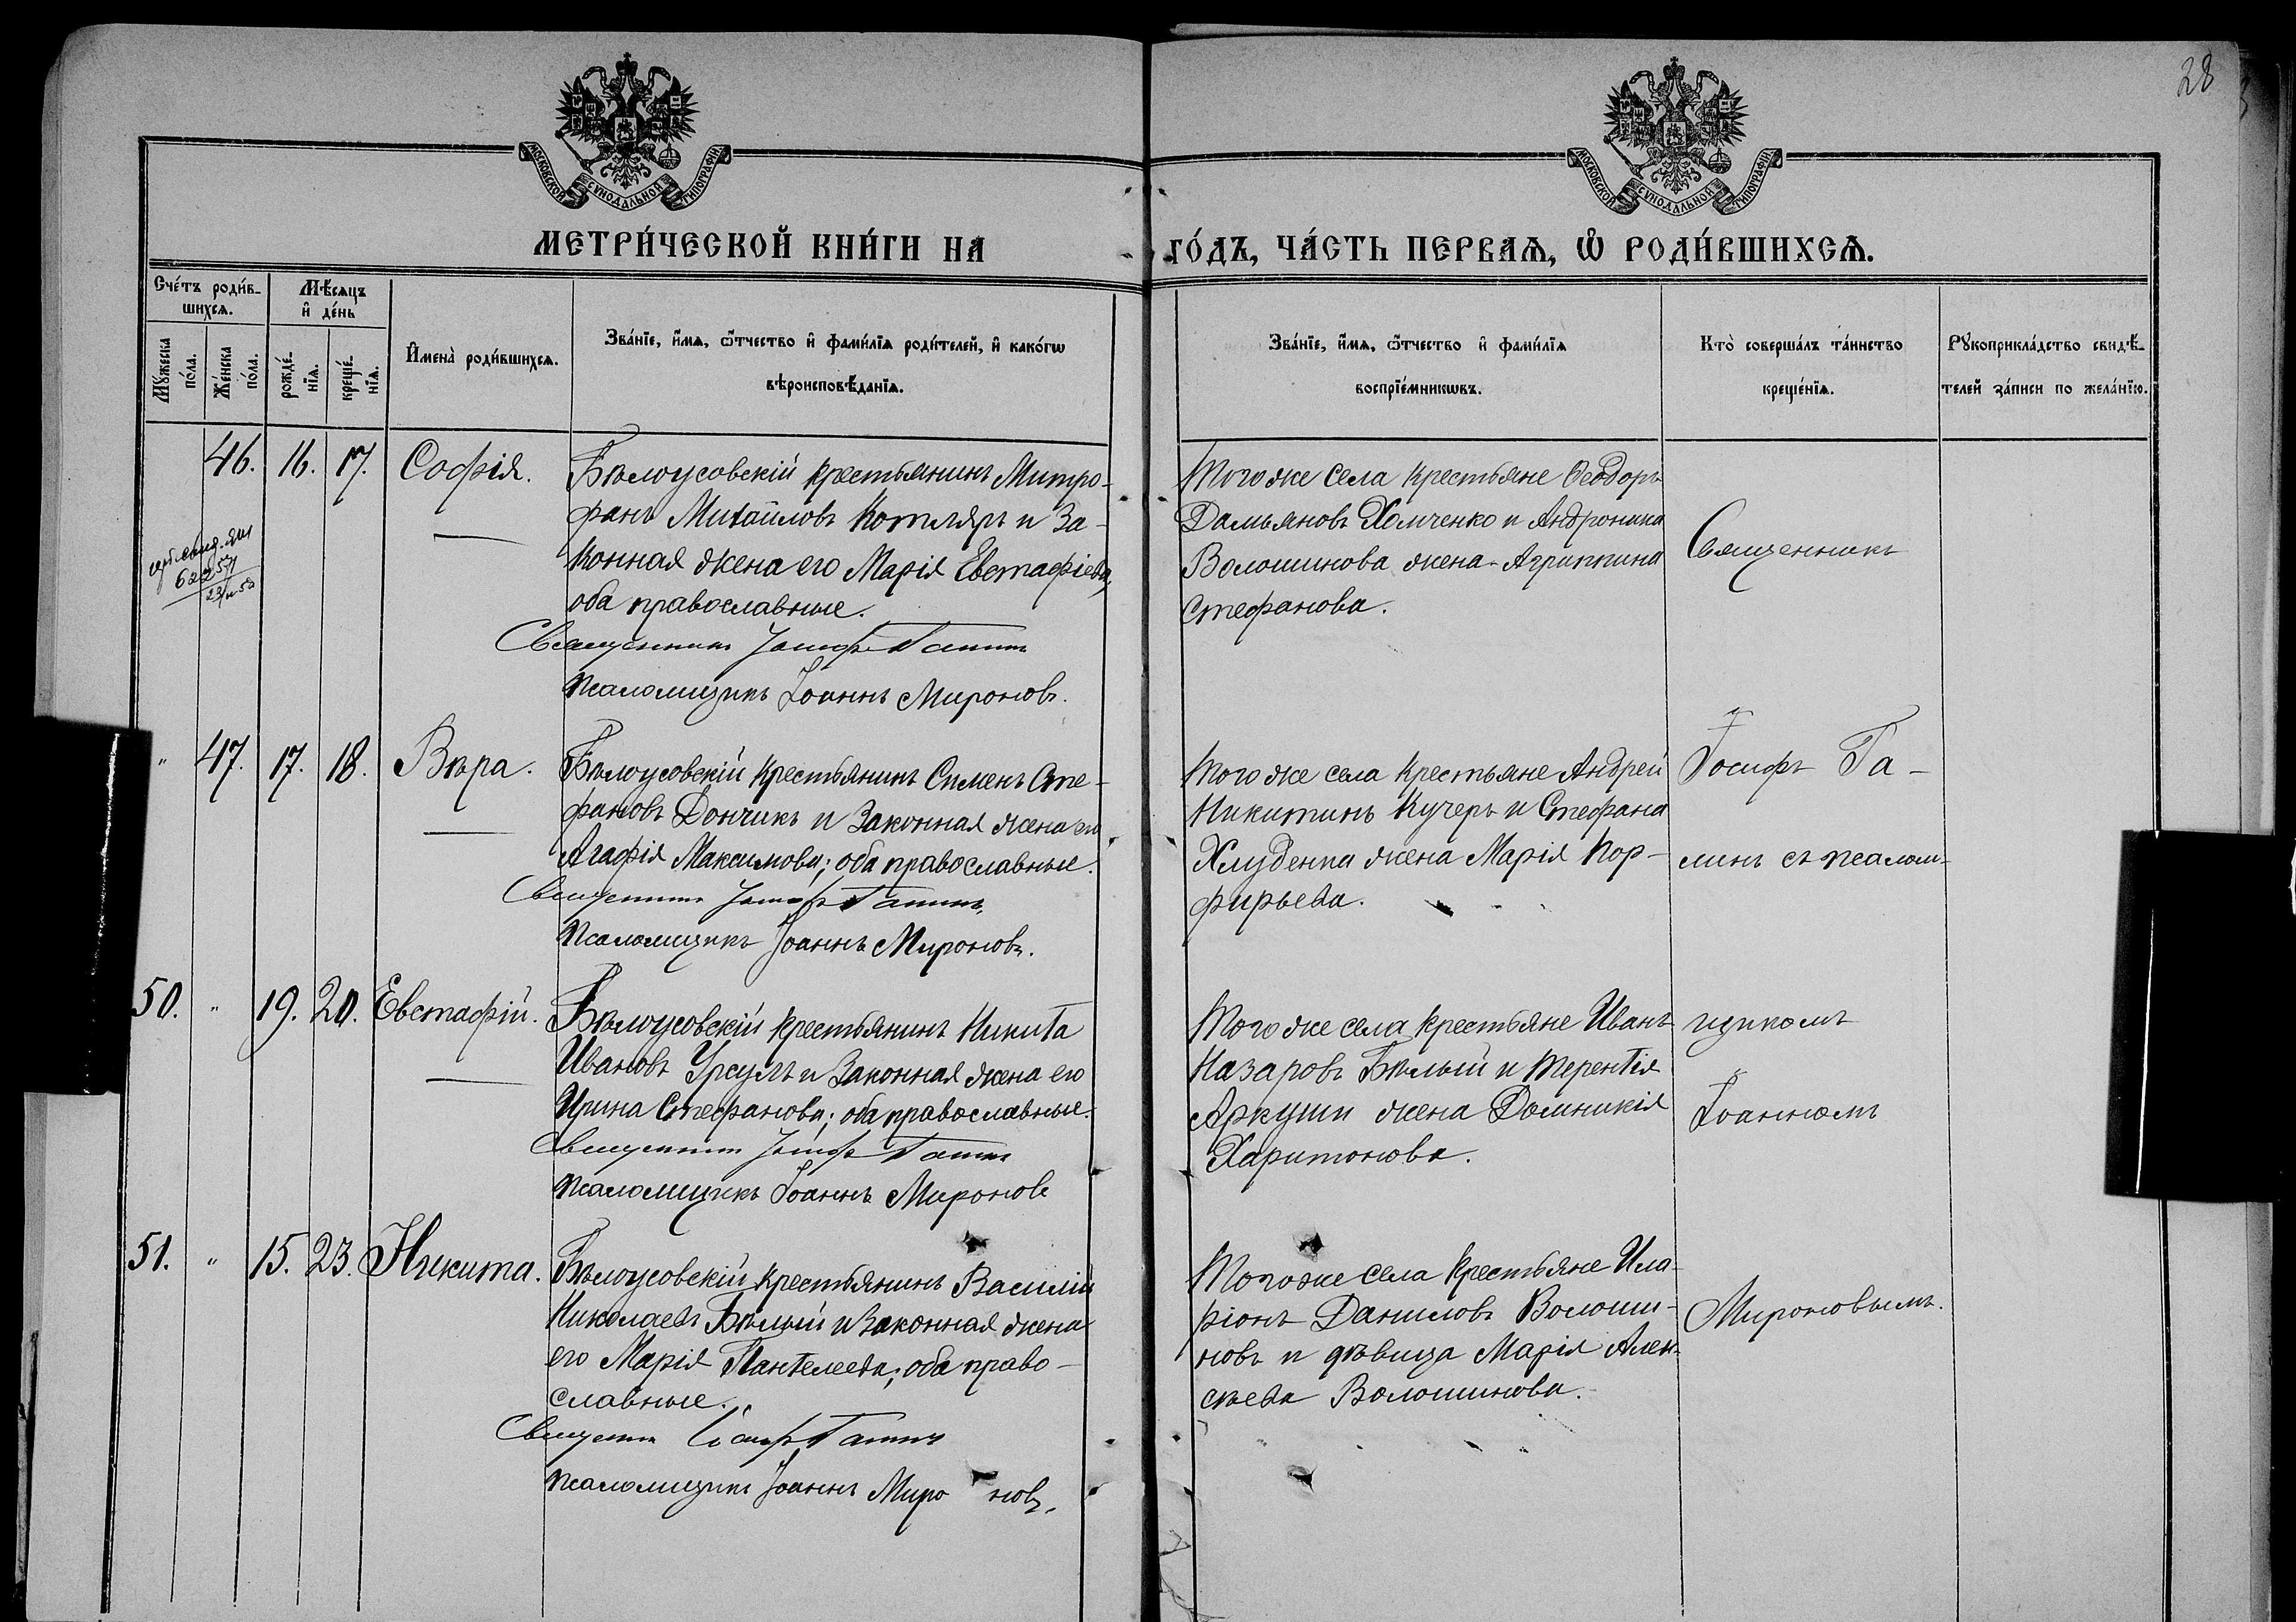 28
МОСКОВСКОЙ СѴНОДАЛЬНОЙ ТИПОГРАФІИ
МОСКОВСКОЙ СѴНОДАЛЬНОЙ ТИПОГРАФІИ
МЕТРИ́ЧЕСКОЙ КНИ́ГИ НА
ГО́ДЪ, ЧА́СТЬ ПЕРВАѦ, Ѡ҆ РОДИ́ВШИХСѦ.
Сче́тъ роди́в-
шихсѧ.
Мѣ́сяцъ
и҆ де́нь
Мꙋ́жеска
по́ла.
Же́нска
по́ла.
рожде́-
нїѧ.
креще́-
нїѧ.
И҆мена̀ роди́вшихсѧ.
Зва́нїе, и҆́мѧ, ѻ҆́тчество и҆ фами́лїѧ роди́телей, и҆ како́гѡ
вѣроисповѣ́данїѧ.
Зва́нїе, и҆́мѧ, ѻ҆́тчество и҆ фами́лїѧ
воспрїе́мникѡвъ.
Кто̀ соверша́лъ та́инство
креще́нїѧ.
Рꙋкоприкла́дство свидѣ́-
телей за́писи по жела́нїю.
46. 16. 17. Софія.
Бѣлоусовскій крестьянинъ Митро-
фанъ Михаиловъ Котляръ и за-
конная жена его Марія Евстафіева,
оба православные.
Священникъ Іосифъ Галинъ
Псаломщикъ Іоаннъ Мироновъ.
Того же села крестьяне Ѳеодоръ
Дамьяновъ Хомченко и Андроника
Волошинова жена - Агриппина
Стефанова.
Священникъ
" 47. 17. 18. Вѣра.
Бѣлоусовскій крестьянинъ Симеонъ Сте-
фановъ Дончикъ и законная жена его
Агафія Максимова; оба православные.
Священникъ Іосифъ Галинъ,
Псаломщикъ Іоаннъ Мироновъ.
Того же села крестьяне Андрей
Никитинъ Кучеръ и Стефана
Хлуденка жена Марія Пор-
фирьева.
Іосифъ Га-
линъ съ псалом-
50. " 19. 20. Евстафій.
Бѣлоусовскій крестьянинъ Никита
Ивановъ Урсулъ и законная жена его
Ирина Стефанова; оба православные.
Священникъ Іосифъ Галинъ
Псаломщикъ Іоаннъ Мироновъ
Того же села крестьяне Иванъ
Назаровъ Бѣлый и Терентія
Аркуши жена Домникія
Харитонова.
щикомъ
Іоанномъ
51. " 15. 23. Никита.
Бѣлоусовскій крестьянинъ Василій
Николаевъ Бѣлый и законная жена
его Марія Пантелеева; оба право-
славные.
Священникъ Іосифъ Галинъ
Псаломщикъ Іоаннъ Мироновъ.
Того же села крестьяне Ила-
ріонъ Даниловъ Волоши-
новъ и дѣвица Марія Алек-
сѣева Волошинова.
Мироновымъ.